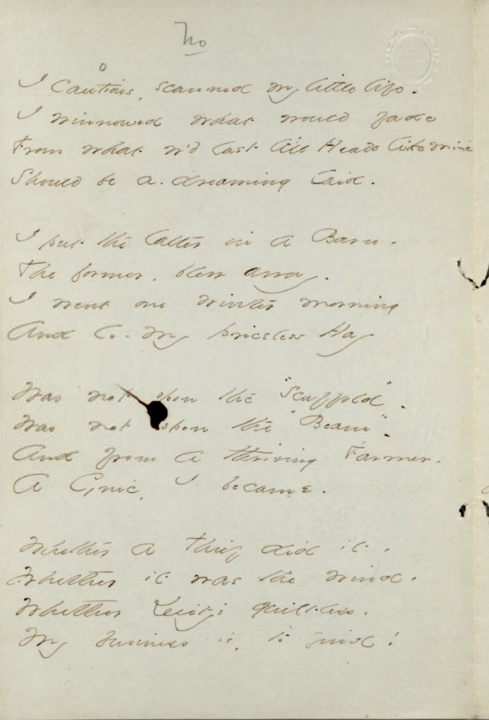 No
I cautious, scanned my little life -
I winnowed what would fade
From what w'd last till Heads like mine
Should be a-dreaming laid.
I put the latter in a Barn -
The former, blew away.
I went one winter morning
And lo - my priceless Hay
Was not upon the "Scaffold" -
Was not upon the "Beam" -
And from a thriving Farmer -
A Cynic, I became.
Whether a Thief did it -
Whether it was the wind -
Whether Deity's guiltless -
My business is, to find!